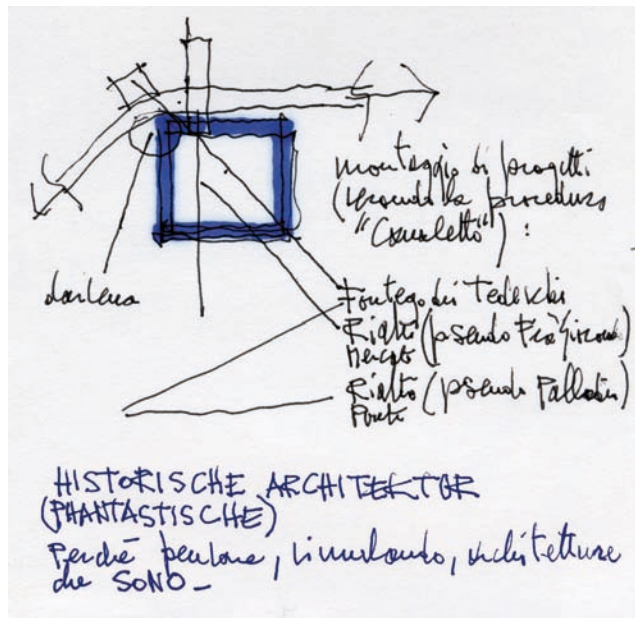 montaggio di progetti
(secondo la procedura
"Canaletto") :
darsena
Fontego dei Tedeschi
Rialto (pseudo Fra' Giocondo
Mercato
Rialto (pseudo Palladio
Ponte
HISTORISCHE ARCHITEKTUR
(PHANTASTISCHE)
Perché parlano, simulando, architetture
che SONO -